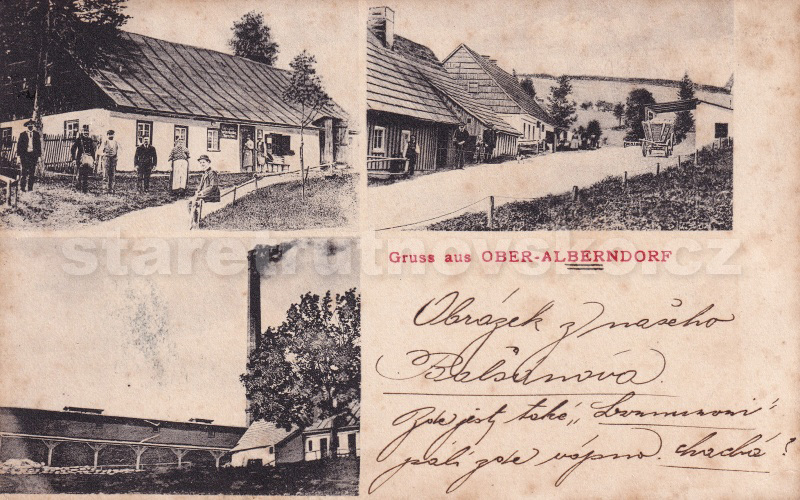 staretrutnovsko.cz
Gruss aus OBER-ALBERNDORF
Obrázek z našeho
Balšánova.
Zde jest také
pálí zde vápno. chachá?